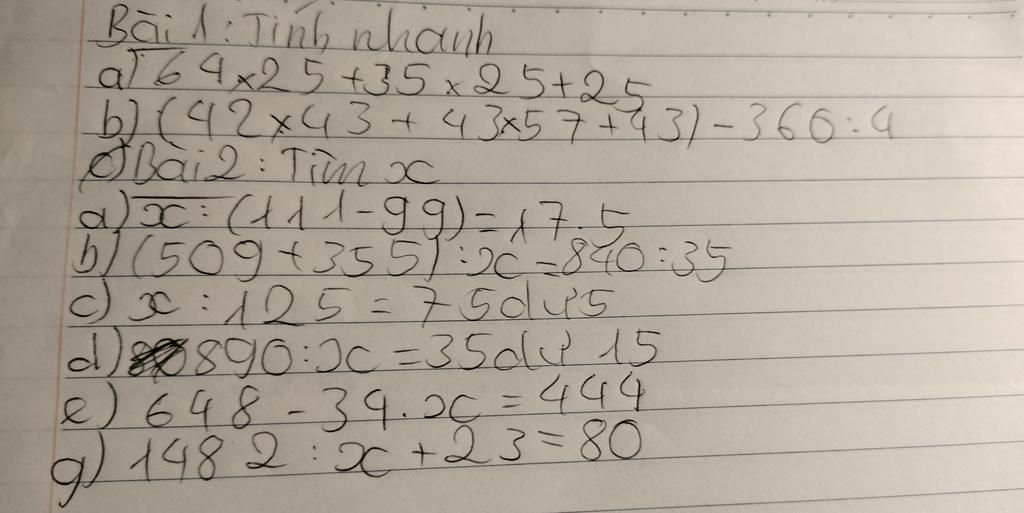 Bài 1: Tính nhanh
a) 64 × 25 + 35 × 25 + 25
b) (42 × 43 + 43 × 57 + 43) - 360 : 4
Bài 2: Tìm x
a) x : (111 - 99) = 17.5
b) (509 + 355) : x = 840 : 35
c) x : 125 = 75 dư 5
d) 890 : x = 35 dư 15
e) 648 - 34.x = 444
g) 1482 : x + 23 = 80